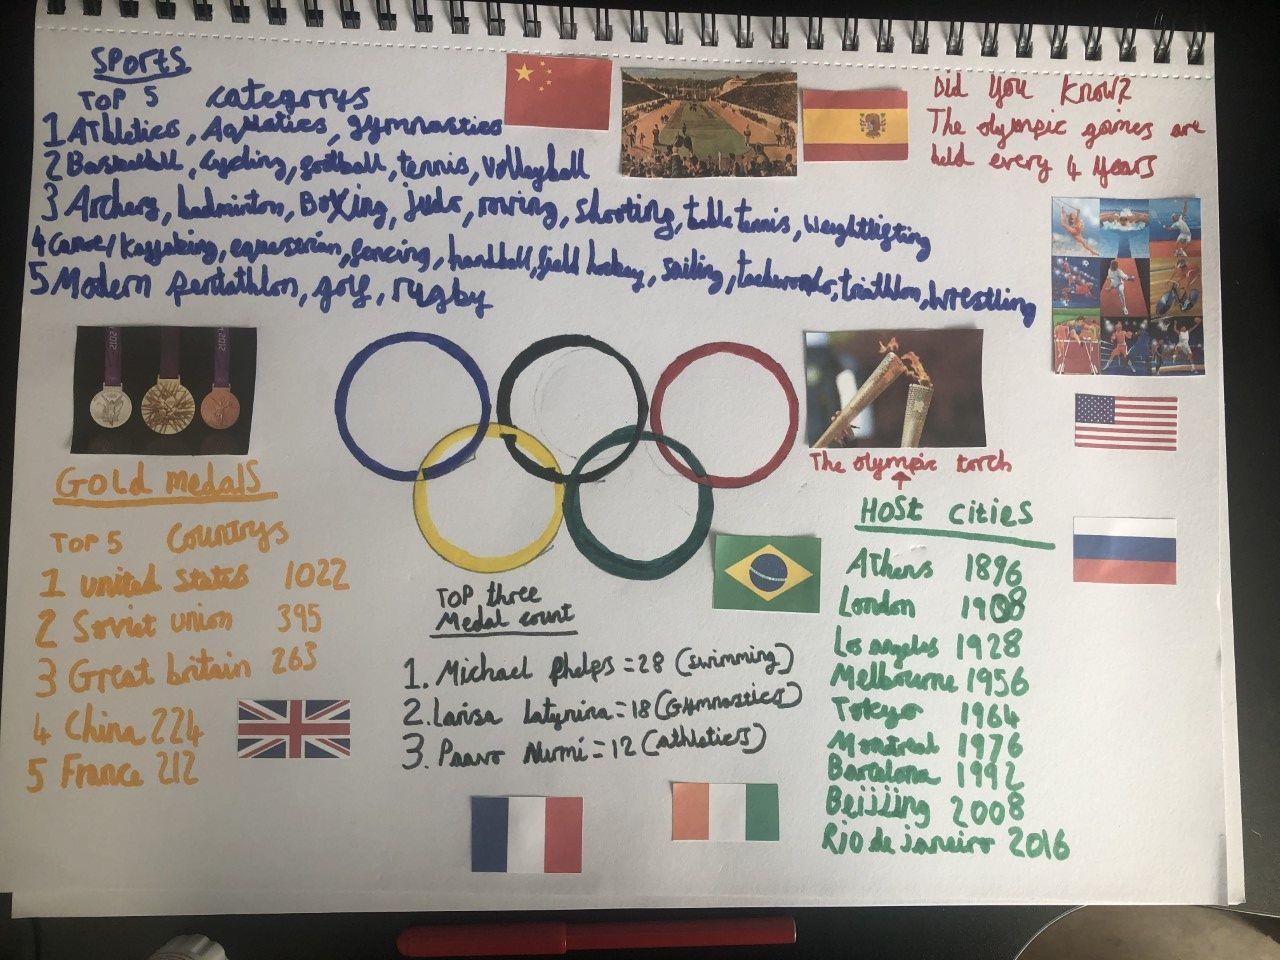 Sports
Top 5 categorys
1 Athletics, Aquatics, gymnastics
2 Basketball, cycling, football, tennis, volleyball
3 Archery, badminton, Boxing, judo, rowing, shooting, table tennis, weightlifting
4 Canoe/kayaking, equestrian, fencing, handball, field hockey, sailing, taekwondo, triathlon, wrestling
5 Modern pentathlon, golf, rugby
Did you know?
The olympic games are
held every 4 years
2012
2012
Gold medals
Top 5 Countrys
1 united states 1022
2 Soviet union 395
3 Great britain 263
4 China 224
5 France 212
Top three
Medal count
1. Michael phelps = 28 (swimming)
2. Larisa latynina = 18 (Gymnastics)
3. Paavo Nurmi = 12 (athletics)
The olympic torch
Host cities
Athens 1896
London 1908
Los angeles 1928
Melbourne 1956
Tokyo 1964
Montreal 1976
Barcelona 1992
Beijiing 2008
Rio de janeiro 2016